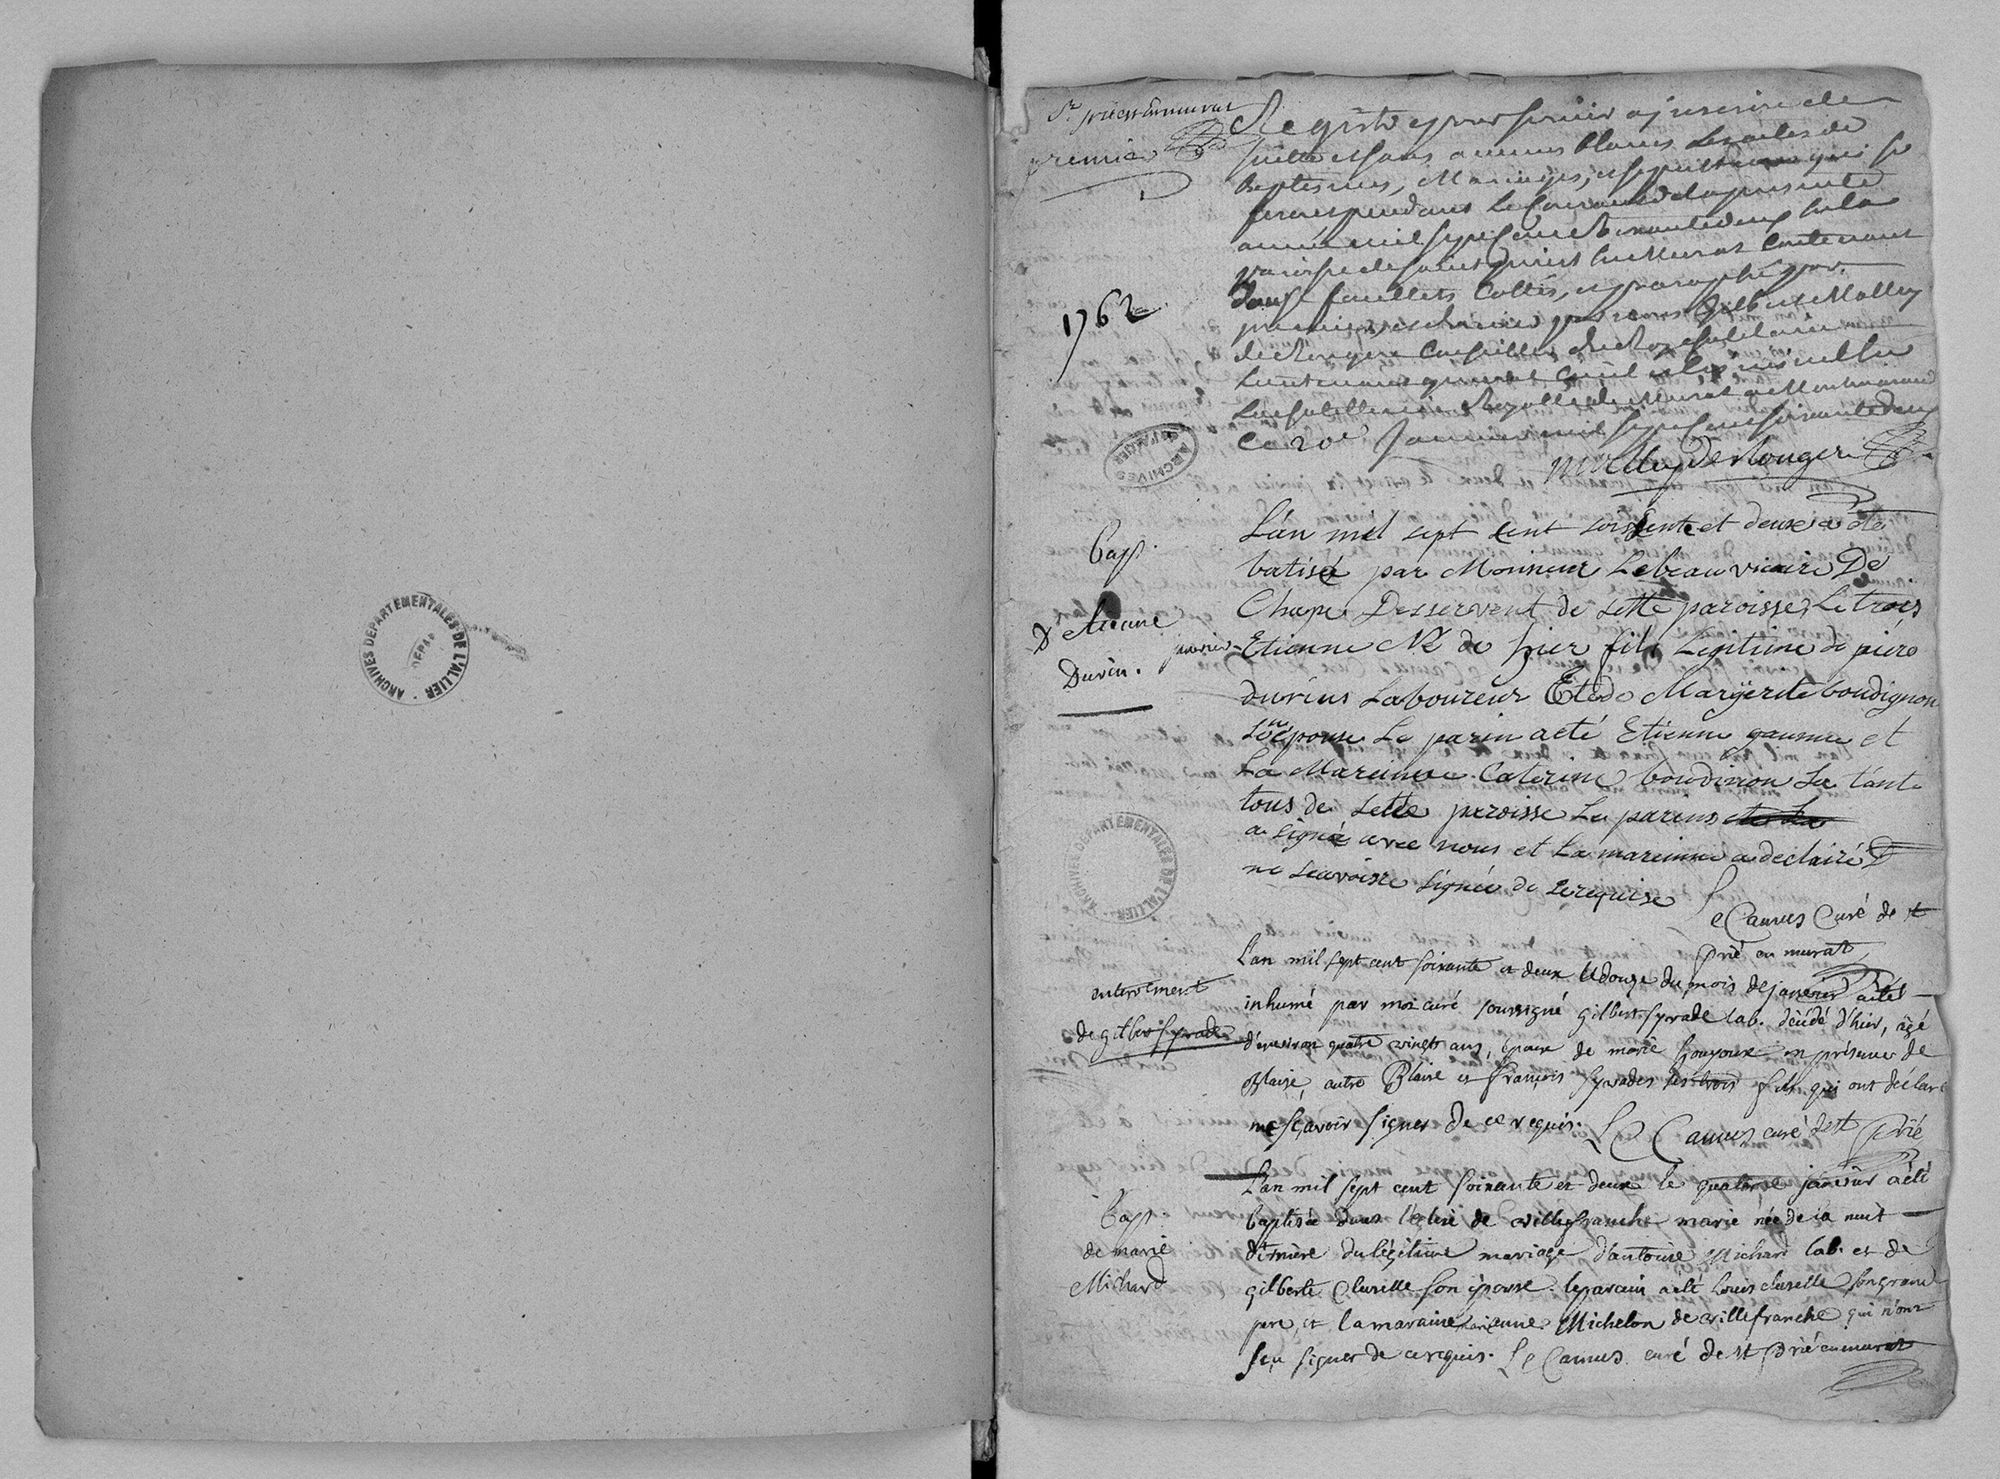 ARCHIVES DEPARTEMENTALES DE L'ALLIER
St priest en murat
premier
Registre pour servir a inscrire de
suitte et sans aucuns blancs les actes de
Baptesmes, Mariages, et sepultures qui se
feront pendant le Courant de la presente
année mil sept Cent soixante deux en la
paroisse de saint priest en Murat Contenant
douze feuillets Cottés, et paraphé par
premier et dernier par nous Gilbert Malley
de Rongere Conseiller du Roy
Lieutenant general Civil et Criminel en
La Chatellenie Royalle de Murat et Montmaraud
Ce 20e Janvier mil sept Cent soixante deux
Malley De Rongere
1762
ARCHIVES
Bap.
D'Etienne
Durin.
L'an mil sept cent soissente et deux a eté
batisé par Monsieur Lebeau vicaire De
Chape Desservent de sette paroisse, Le trois
janvier Etienne Né de hier fils Legitime de piere
durins Laboureur Et de Margerite boudignon
son épouse Le parin a eté Etienne gaume et
La Mareinne Caterine boudinion sa tant
tous de sette paroisse Le parins et La
a signé avec nous et La mareinne a declairé
ne scavoire signée de
Le Camus Curé de st
prié en murat
ARCHIVES DEPARTEMENTALES DE L'ALLIER
enterrement
de gilbert syrade
L'an mil sept cent soixante et deux le douze du mois de janvier a été
inhumé par moi curé soussigné gilbert syrade lab. décédé d'hier, agé
d'environ quatre vingts ans, époux de marie en présence de
Blaise, autre Blaise et françois syrades ses trois fils qui ont déclaré
ne sçavoir signer de ce requis. Le Camus curé de st prié
Bap.
de marie
Michard
L'an mil sept cent soixante et deux le quatorze janvier a été
baptisée dans l'eglise de villefranche marie née de la nuit
dernière du légitime mariage d'antoine Michard lab. et de
gilberte Cluzelle son épouse. le parain a été Louis cluzelle son grand
pere, et la maraine Michelon de villefranche qui n'ont
sçu signer de ce requis. Le Camus curé de st prié en murat